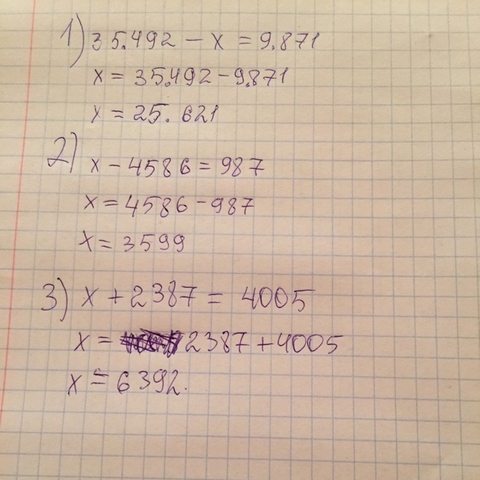 1) 35.492 - x = 9.871
x = 35.492 - 9.871
x = 25.621
2) x - 4586 = 987
x = 4586 - 987
x = 3599
3) x + 2387 = 4005
x = 2387 + 4005
x = 6392.